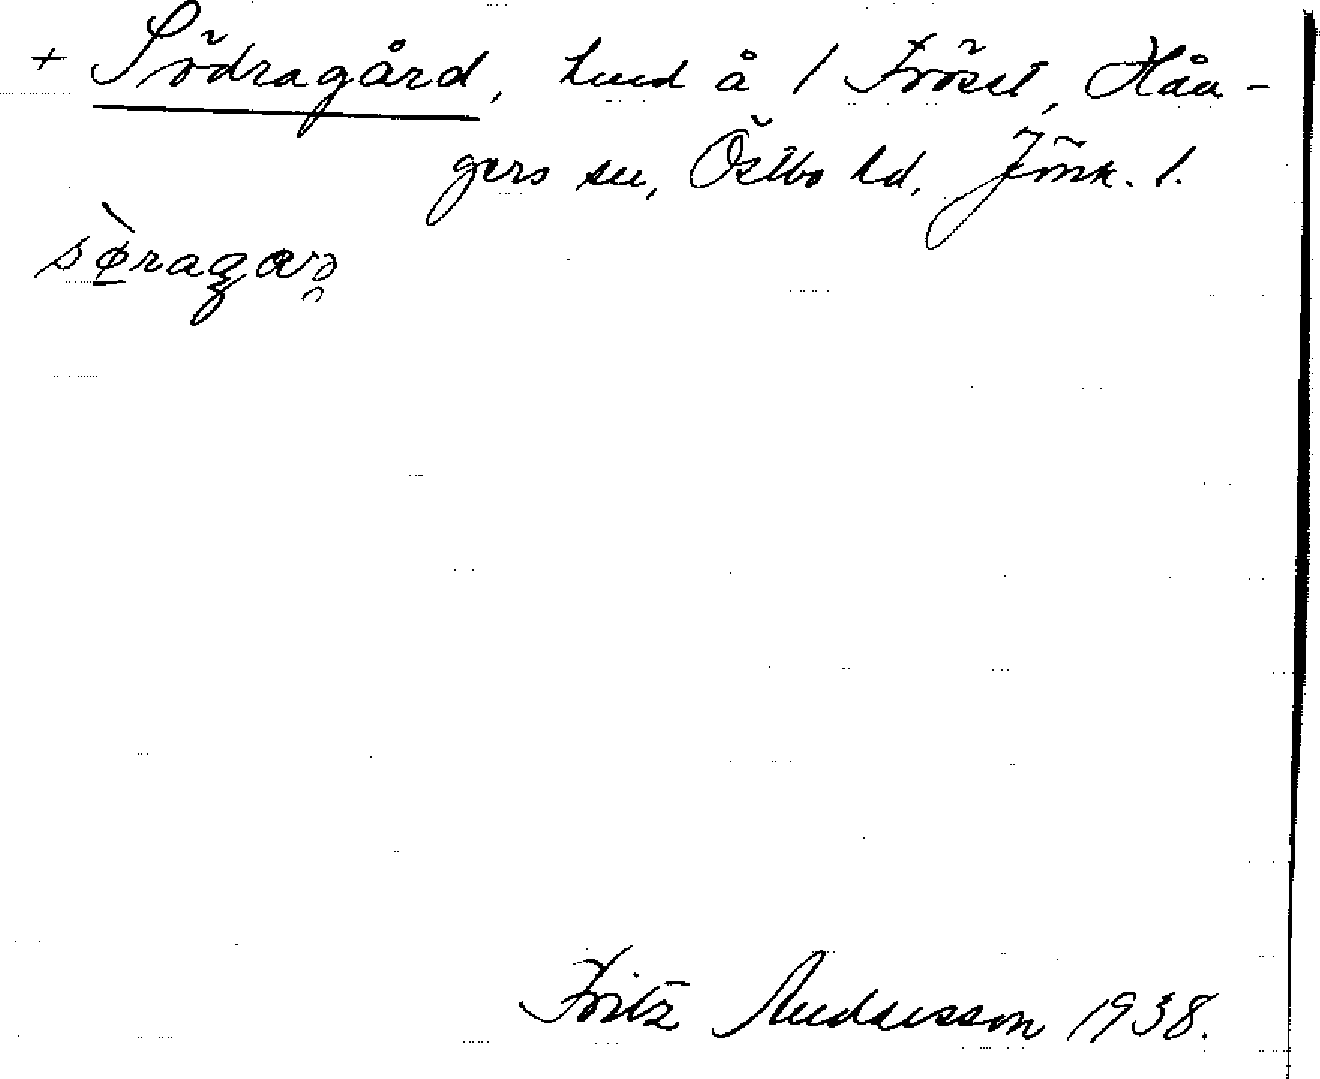 + Södragård, hmd å 1 Fröset, Hån-
gers sn, Östbo hd, Jönk. l.
Fritz Andersson 1938.